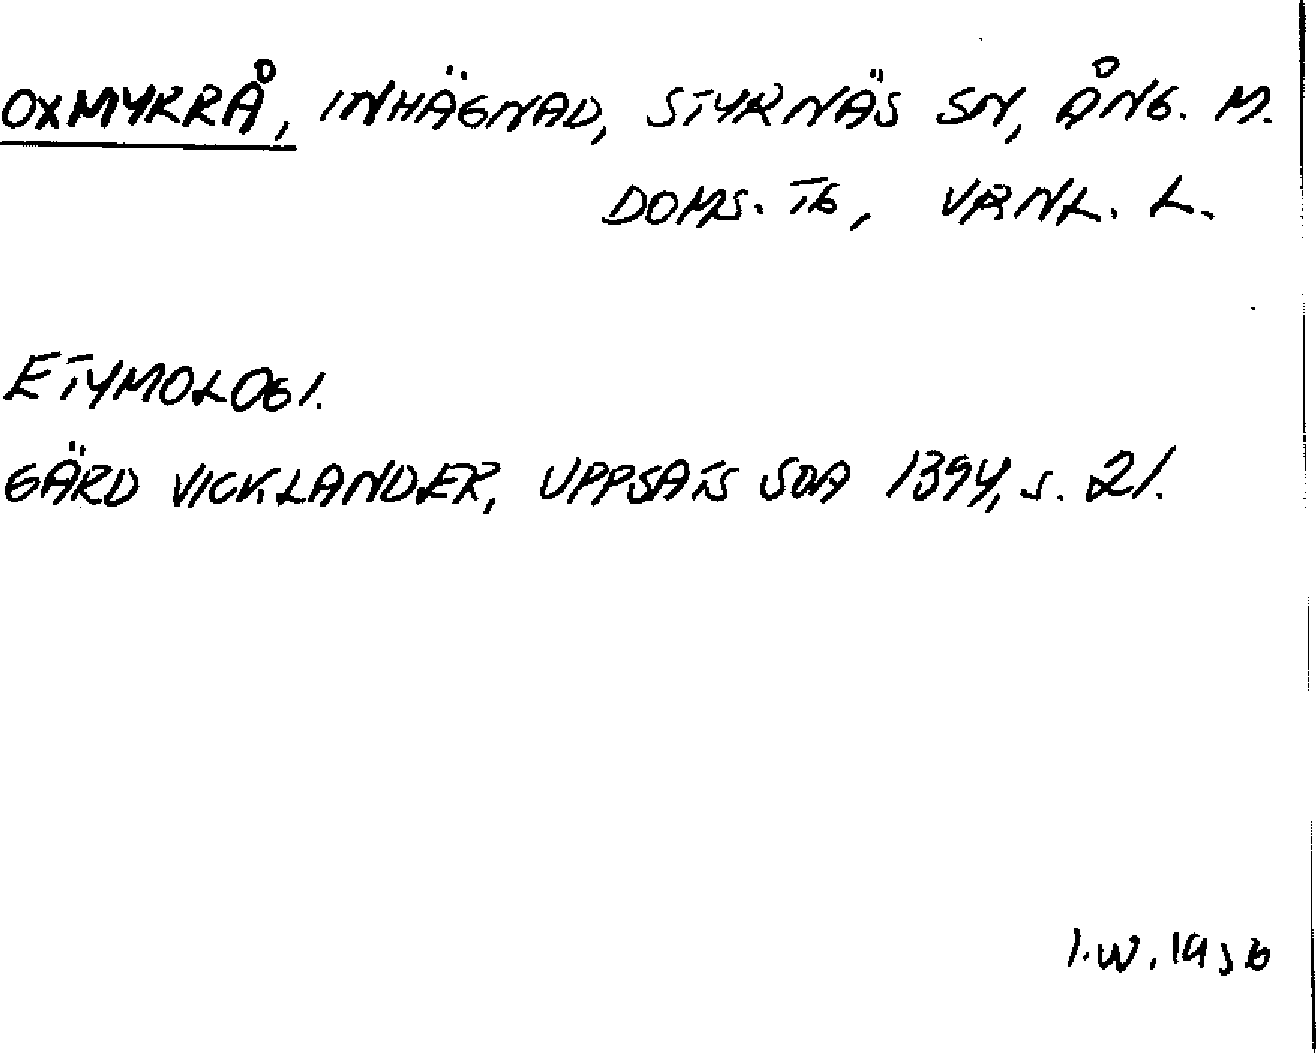 OXMYRRÅ, INHÄGNAD, STYRNÄS SN, ÅNG. M.
DOMS. TG, VRNL. L.
ETYMOLOGI.
GÄRD VICKLANDER, UPPSATS SOA 1394, s. 21.
I.W. 1956